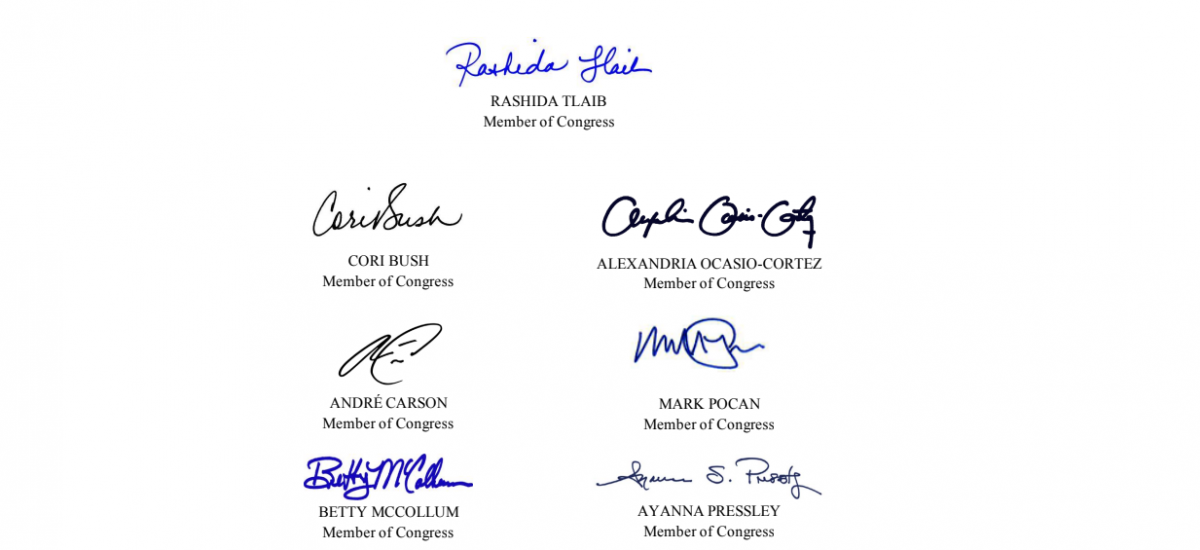 Rashida Tlaib
RASHIDA TLAIB
Member of Congress
Cori Bush
CORI BUSH
Member of Congress
Alexandria Ocasio-Cortez
ALEXANDRIA OCASIO-CORTEZ
Member of Congress
ANDRÉ CARSON
Member of Congress
MARK POCAN
Member of Congress
Betty McCollum
BETTY MCCOLLUM
Member of Congress
Ayanna S. Pressley
AYANNA PRESSLEY
Member of Congress